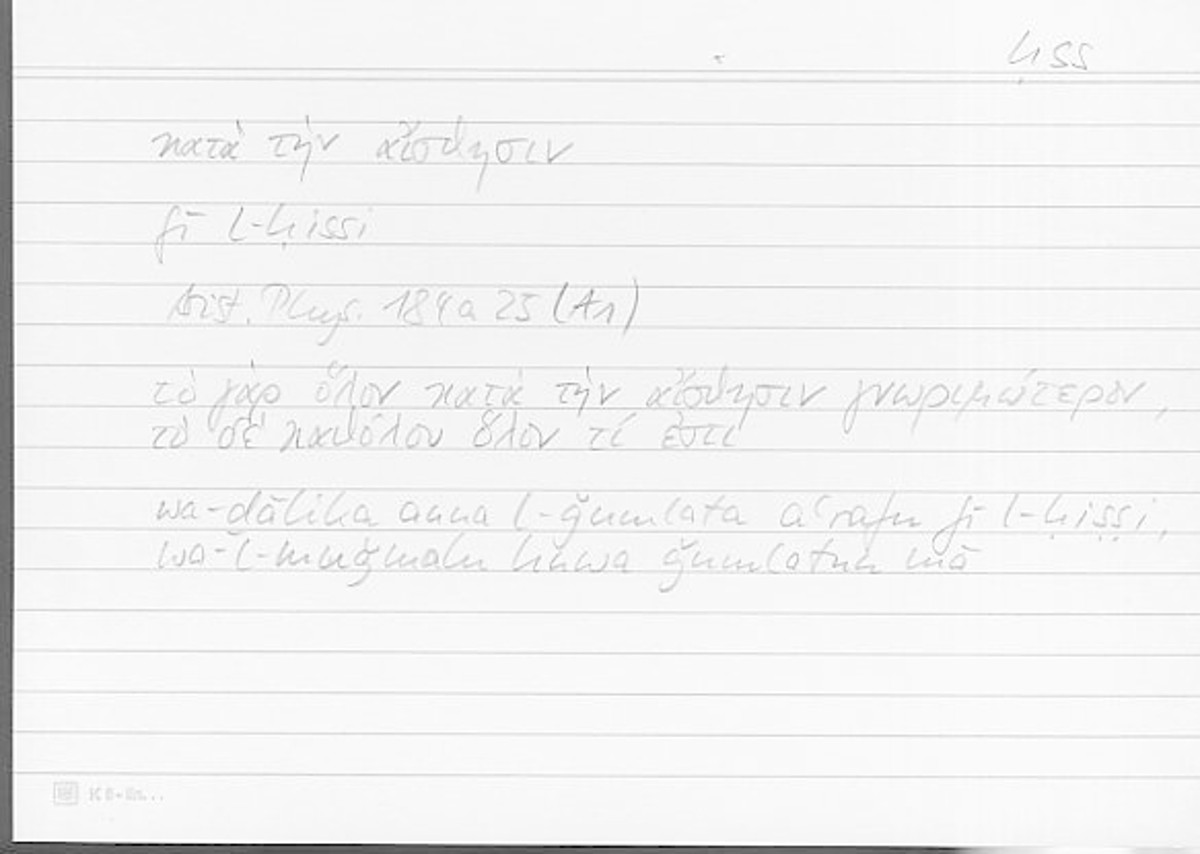 ḥss
κατὰ τὴν αἴσθησιν
fī l-ḥissi
Arist. Phys. 184a 25 (A1)
τὸ γὰρ ὅλον κατὰ τὴν αἴσθησιν γνωριμώτερον,
τὸ δὲ καθόλου ὅλον τί ἐστι
wa-ḏālika anna l-ǧumlata aʿrafu fī l-ḥiṣṣi,
wa-l-muǧmalu huwa ǧumlatun mā